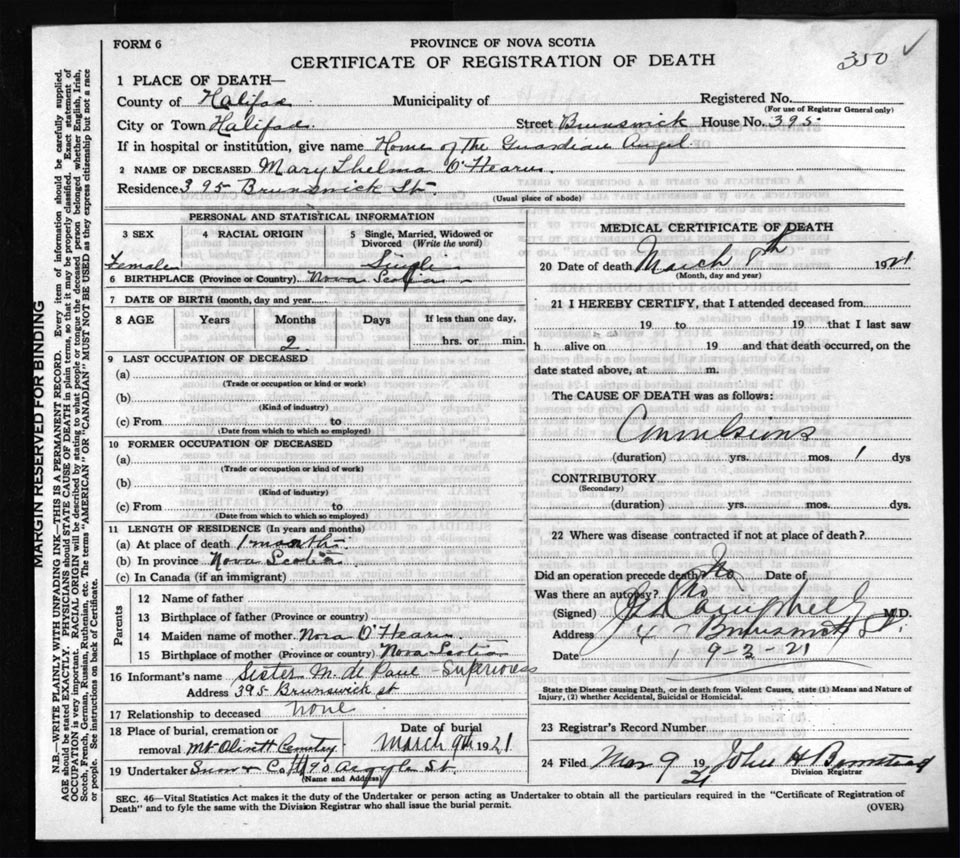 FORM 6
PROVINCE OF NOVA SCOTIA
CERTIFICATE OF REGISTRATION OF DEATH
350 ✓
1 PLACE OF DEATH—
County of Halifax Municipality of Registered No.
(For use of Registrar General only)
City or Town Halifax. Street Brunswick House No. 395
If in hospital or institution, give name Home of The Guardian Angel
2 NAME OF DECEASED Mary Thelma O'Hearn.
Residence 395 Brunswick St.
(Usual place of abode)
PERSONAL AND STATISTICAL INFORMATION
3 SEX 4 RACIAL ORIGIN 5 Single, Married, Widowed or Divorced (Write the word)
Female Single
6 BIRTHPLACE (Province or Country) Nova Scotia
7 DATE OF BIRTH (month, day and year)
8 AGE Years Months Days If less than one day,
2 hrs. or min.
9 LAST OCCUPATION OF DECEASED
(a)
(Trade or occupation or kind or work)
(b)
(Kind of industry)
(c) From to
(Date from which to which so employed)
10 FORMER OCCUPATION OF DECEASED
(a)
(Trade or occupation or kind or work)
(b)
(Kind of industry)
(c) From to
(Date from which to which so employed)
11 LENGTH OF RESIDENCE (In years and months)
(a) At place of death 1 month
(b) In province Nova Scotia
(c) In Canada (if an immigrant)
Parents
12 Name of father
13 Birthplace of father (Province or country)
14 Maiden name of mother Nora O'Hearn.
15 Birthplace of mother (Province or country) Nova Scotia
16 Informant's name Sister M. de Paul - Superioress
Address 395 Brunswick st
17 Relationship to deceased none
18 Place of burial, cremation or Date of burial
removal Mt Olivett Cemetery March 9th 1921
19 Undertaker Snow & Co 90 Argyle St.
(Name and Address)
MEDICAL CERTIFICATE OF DEATH
20 Date of death March 8th 1921
(Month, day and year)
21 I HEREBY CERTIFY, that I attended deceased from
19 to 19 that I last saw
h alive on 19 and that death occurred, on the
date stated above, at m.
The CAUSE OF DEATH was as follows:
Convulsions
(duration) yrs. mos. 1 dys
CONTRIBUTORY
(Secondary)
(duration) yrs. mos. dys
22 Where was disease contracted if not at place of death?
Did an operation precede death No Date of
Was there an autopsy? No
(Signed) Campbell M.D.
Address Brunswick St.
Date 9-3-21
State the Disease causing Death, or in death from Violent Causes, state (1) Means and Nature of
Injury, (2) whether Accidental, Suicidal or Homicidal.
23 Registrar's Record Number
24 Filed Mar 9 1921 John H Bamstead
Division Registrar
SEC. 46—Vital Statistics Act makes it the duty of the Undertaker or person acting as Undertaker to obtain all the particulars required in the "Certificate of Registration of
Death" and to fyle the same with the Division Registrar who shall issue the burial permit.
(OVER)
MARGIN RESERVED FOR BINDING
N.B.—WRITE PLAINLY WITH UNFADING INK—THIS IS A PERMANENT RECORD. Every item of information should be carefully supplied.
AGE should be stated EXACTLY. PHYSICIANS should STATE CAUSE OF DEATH in plain terms, so that it may be properly classified. Exact statement of
OCCUPATION is very important. RACIAL ORIGIN will be described by stating to what people or tongue the deceased person belonged whether English, Irish,
Scotch, French, German, Russian, Ruthenian, etc. The terms "AMERICAN" OR "CANADIAN" MUST NOT BE USED as they express citizenship but not a race
or people. See instructions on back of Certificate.